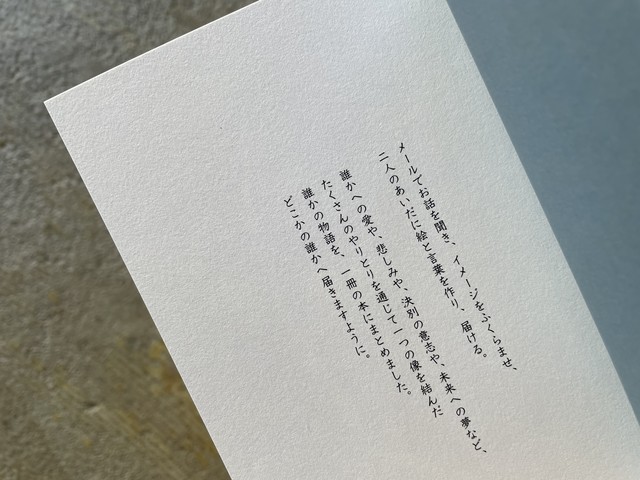 メールでお話を聞き、イメージをふくらませ、
二人のあいだに絵と言葉を作り、届ける。
誰かへの愛や、悲しみや、決別の意志や、未来への夢など、
たくさんのやりとりを通じて一つの像を結んだ
誰かの物語を、一冊の本にまとめました。
どこかの誰かへ届きますように。